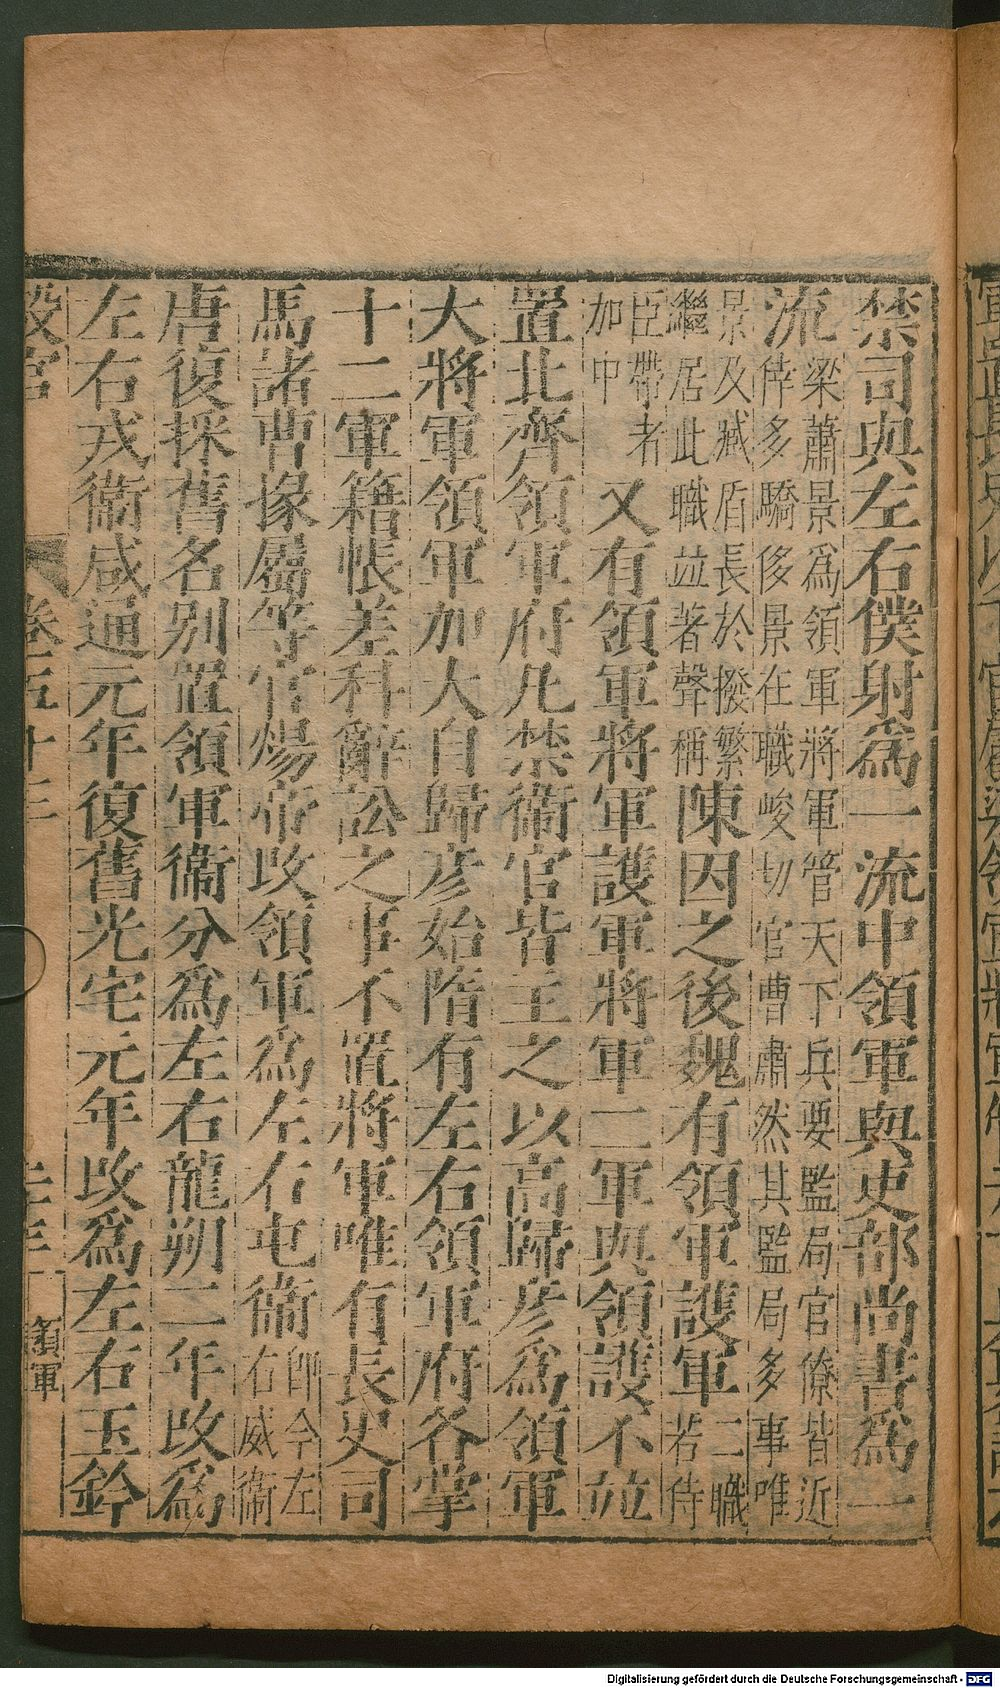 禁司與左右僕射爲一流中領軍與吏部尚書爲一
流梁蕭景爲領軍將軍管天下兵要監局官僚皆近
倖多驕侈景在職峻切官曹肅然其監局多事唯
景及臧盾長於撥繁
繼居此職竝著聲稱陳因之後魏有領軍護軍二職
若侍
臣帶者
加中又有領軍將軍護軍將軍二軍與領護不竝
置北齊領軍府凡禁衛官皆主之以高歸彥爲領軍
大將軍領軍加大自歸彥始隋有左右領軍府各掌
十二軍籍帳差科辭訟之事不置將軍唯有長史司
馬諸曹掾屬等官煬帝改領軍爲左右屯衛即今左
右威衛
唐復採舊名別置領軍衛分爲左右龍朔二年改爲
左右戎衛咸通元年復舊光宅元年改爲左右玉鈐
設官
卷五十三
領軍
Digitalisierung gefördert durch die Deutsche Forschungsgemeinschaft - DFG